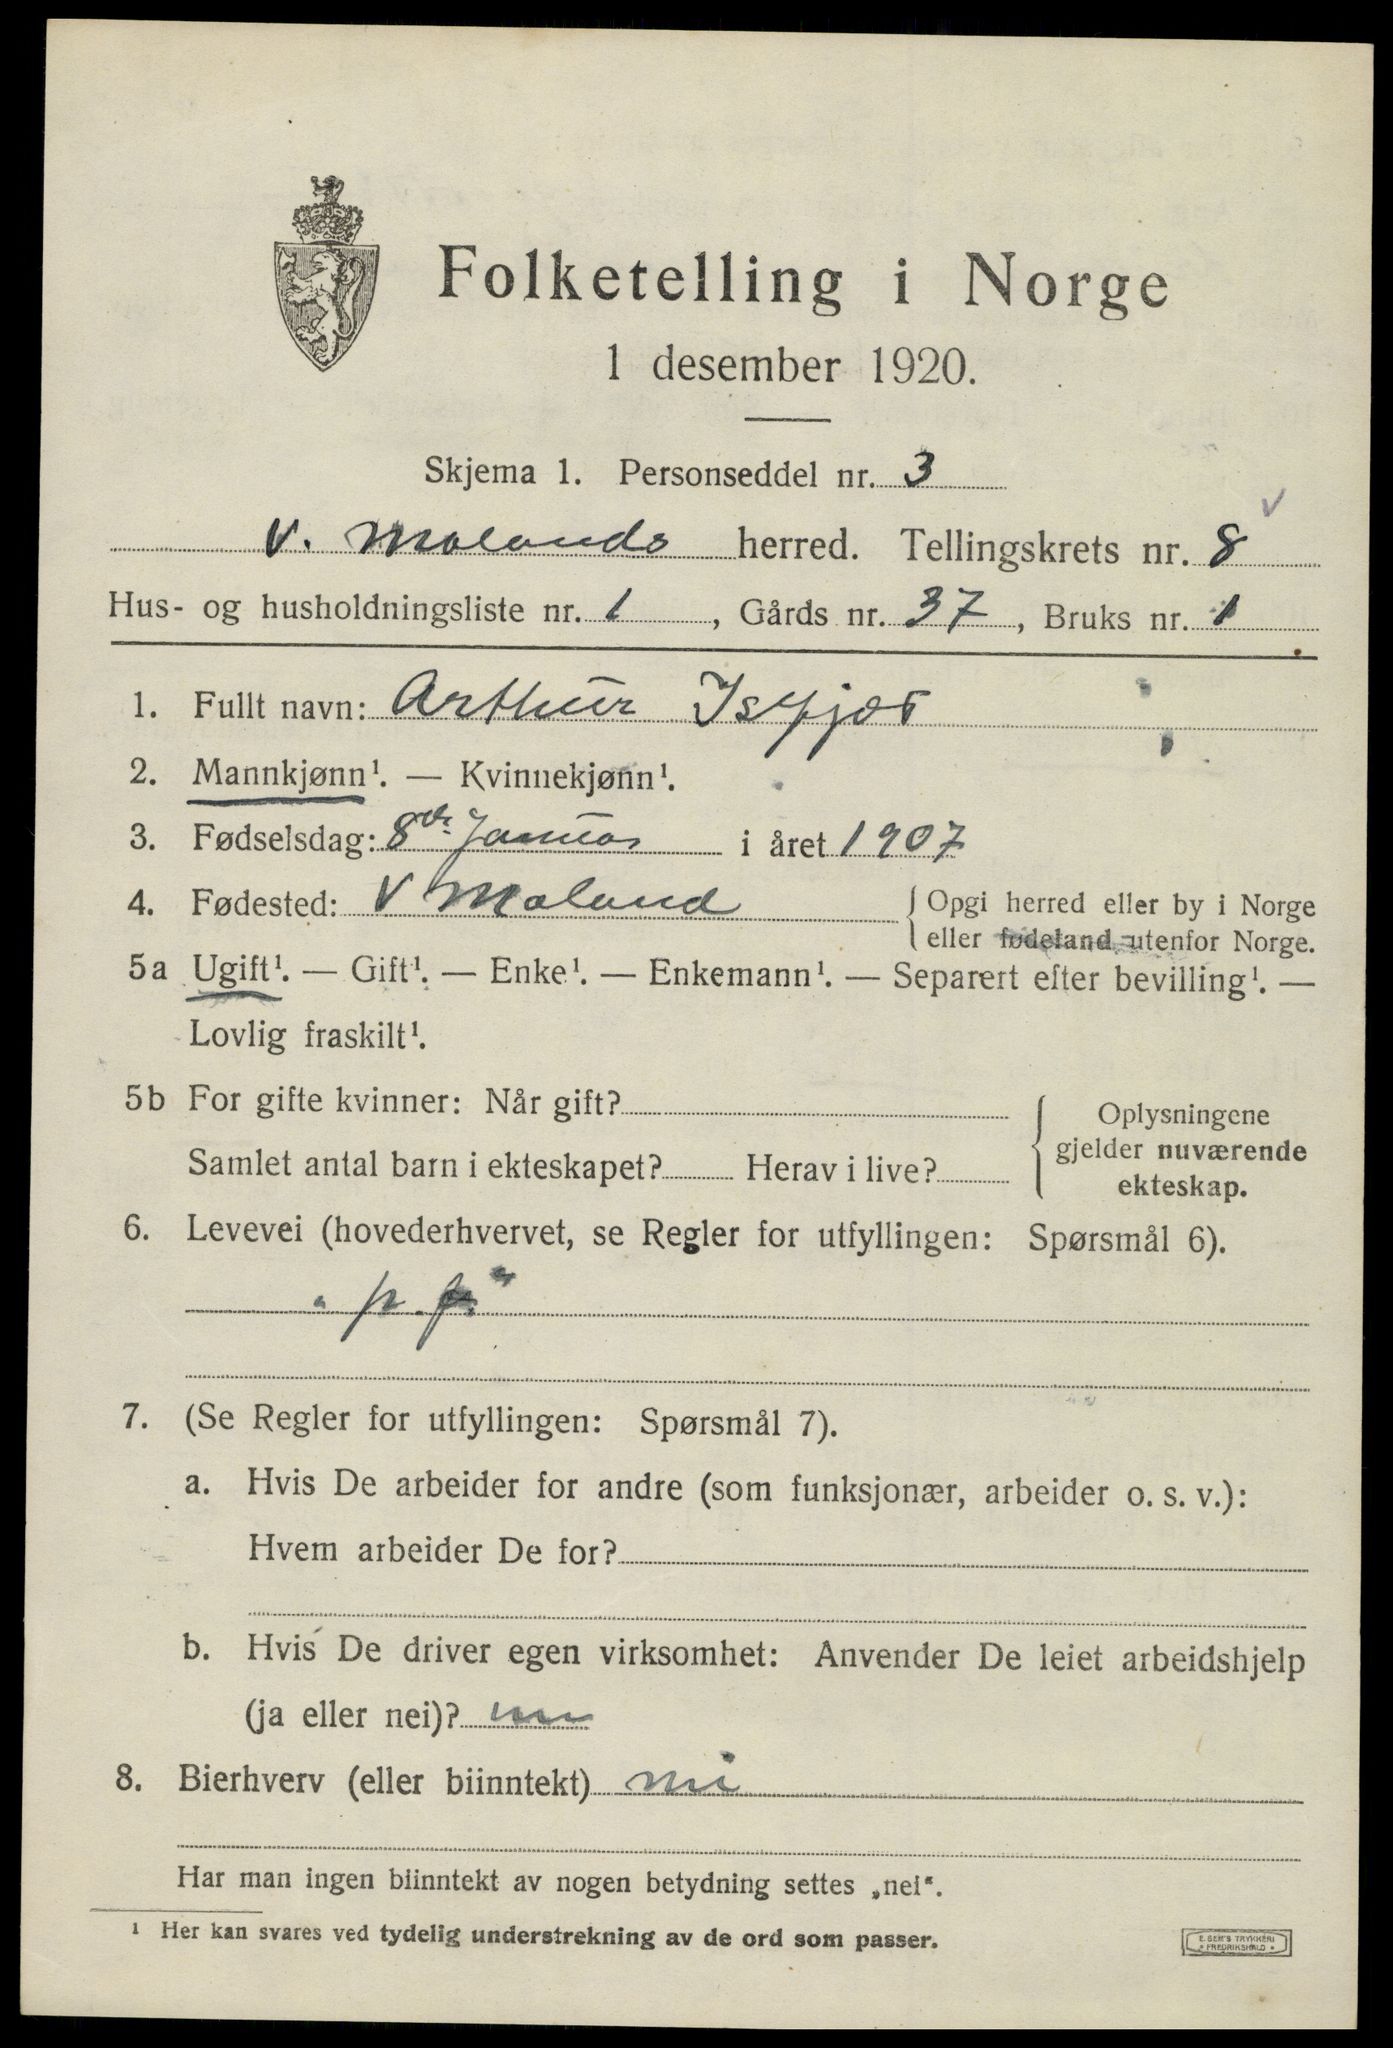 Folketelling i Norge
1 desember 1920.
Skjema 1. Personseddel nr. 3
V. Molands herred. Tellingskrets nr. 8
Hus- og husholdningsliste nr. 1, Gårds nr. 37, Bruks nr. 1
1. Fullt navn: Arthur
2. Mannkjønn¹. — Kvinnekjønn¹.
3. Fødselsdag: 8de Januar i året 1907
4. Fødested: V Moland { Opgi herred eller by i Norge
eller fødeland utenfor Norge.
5a Ugift¹. — Gift¹. — Enke¹. — Enkemann¹. — Separert efter bevilling¹. —
Lovlig fraskilt¹.
5b For gifte kvinner: Når gift? { Oplysningene
gjelder nuværende
Samlet antal barn i ekteskapet? Herav i live?
ekteskap.
6. Levevei (hovederhvervet, se Regler for utfyllingen: Spørsmål 6).
7. (Se Regler for utfyllingen: Spørsmål 7).
a. Hvis De arbeider for andre (som funksjonær, arbeider o. s. v.):
Hvem arbeider De for?
b. Hvis De driver egen virksomhet: Anvender De leiet arbeidshjelp
(ja eller nei)?
8. Bierhverv (eller biinntekt) nei
Har man ingen biinntekt av nogen betydning settes „nei".
¹ Her kan svares ved tydelig understrekning av de ord som passer.
E. SEM'S TRYKKERI
FREDRIKSHALD